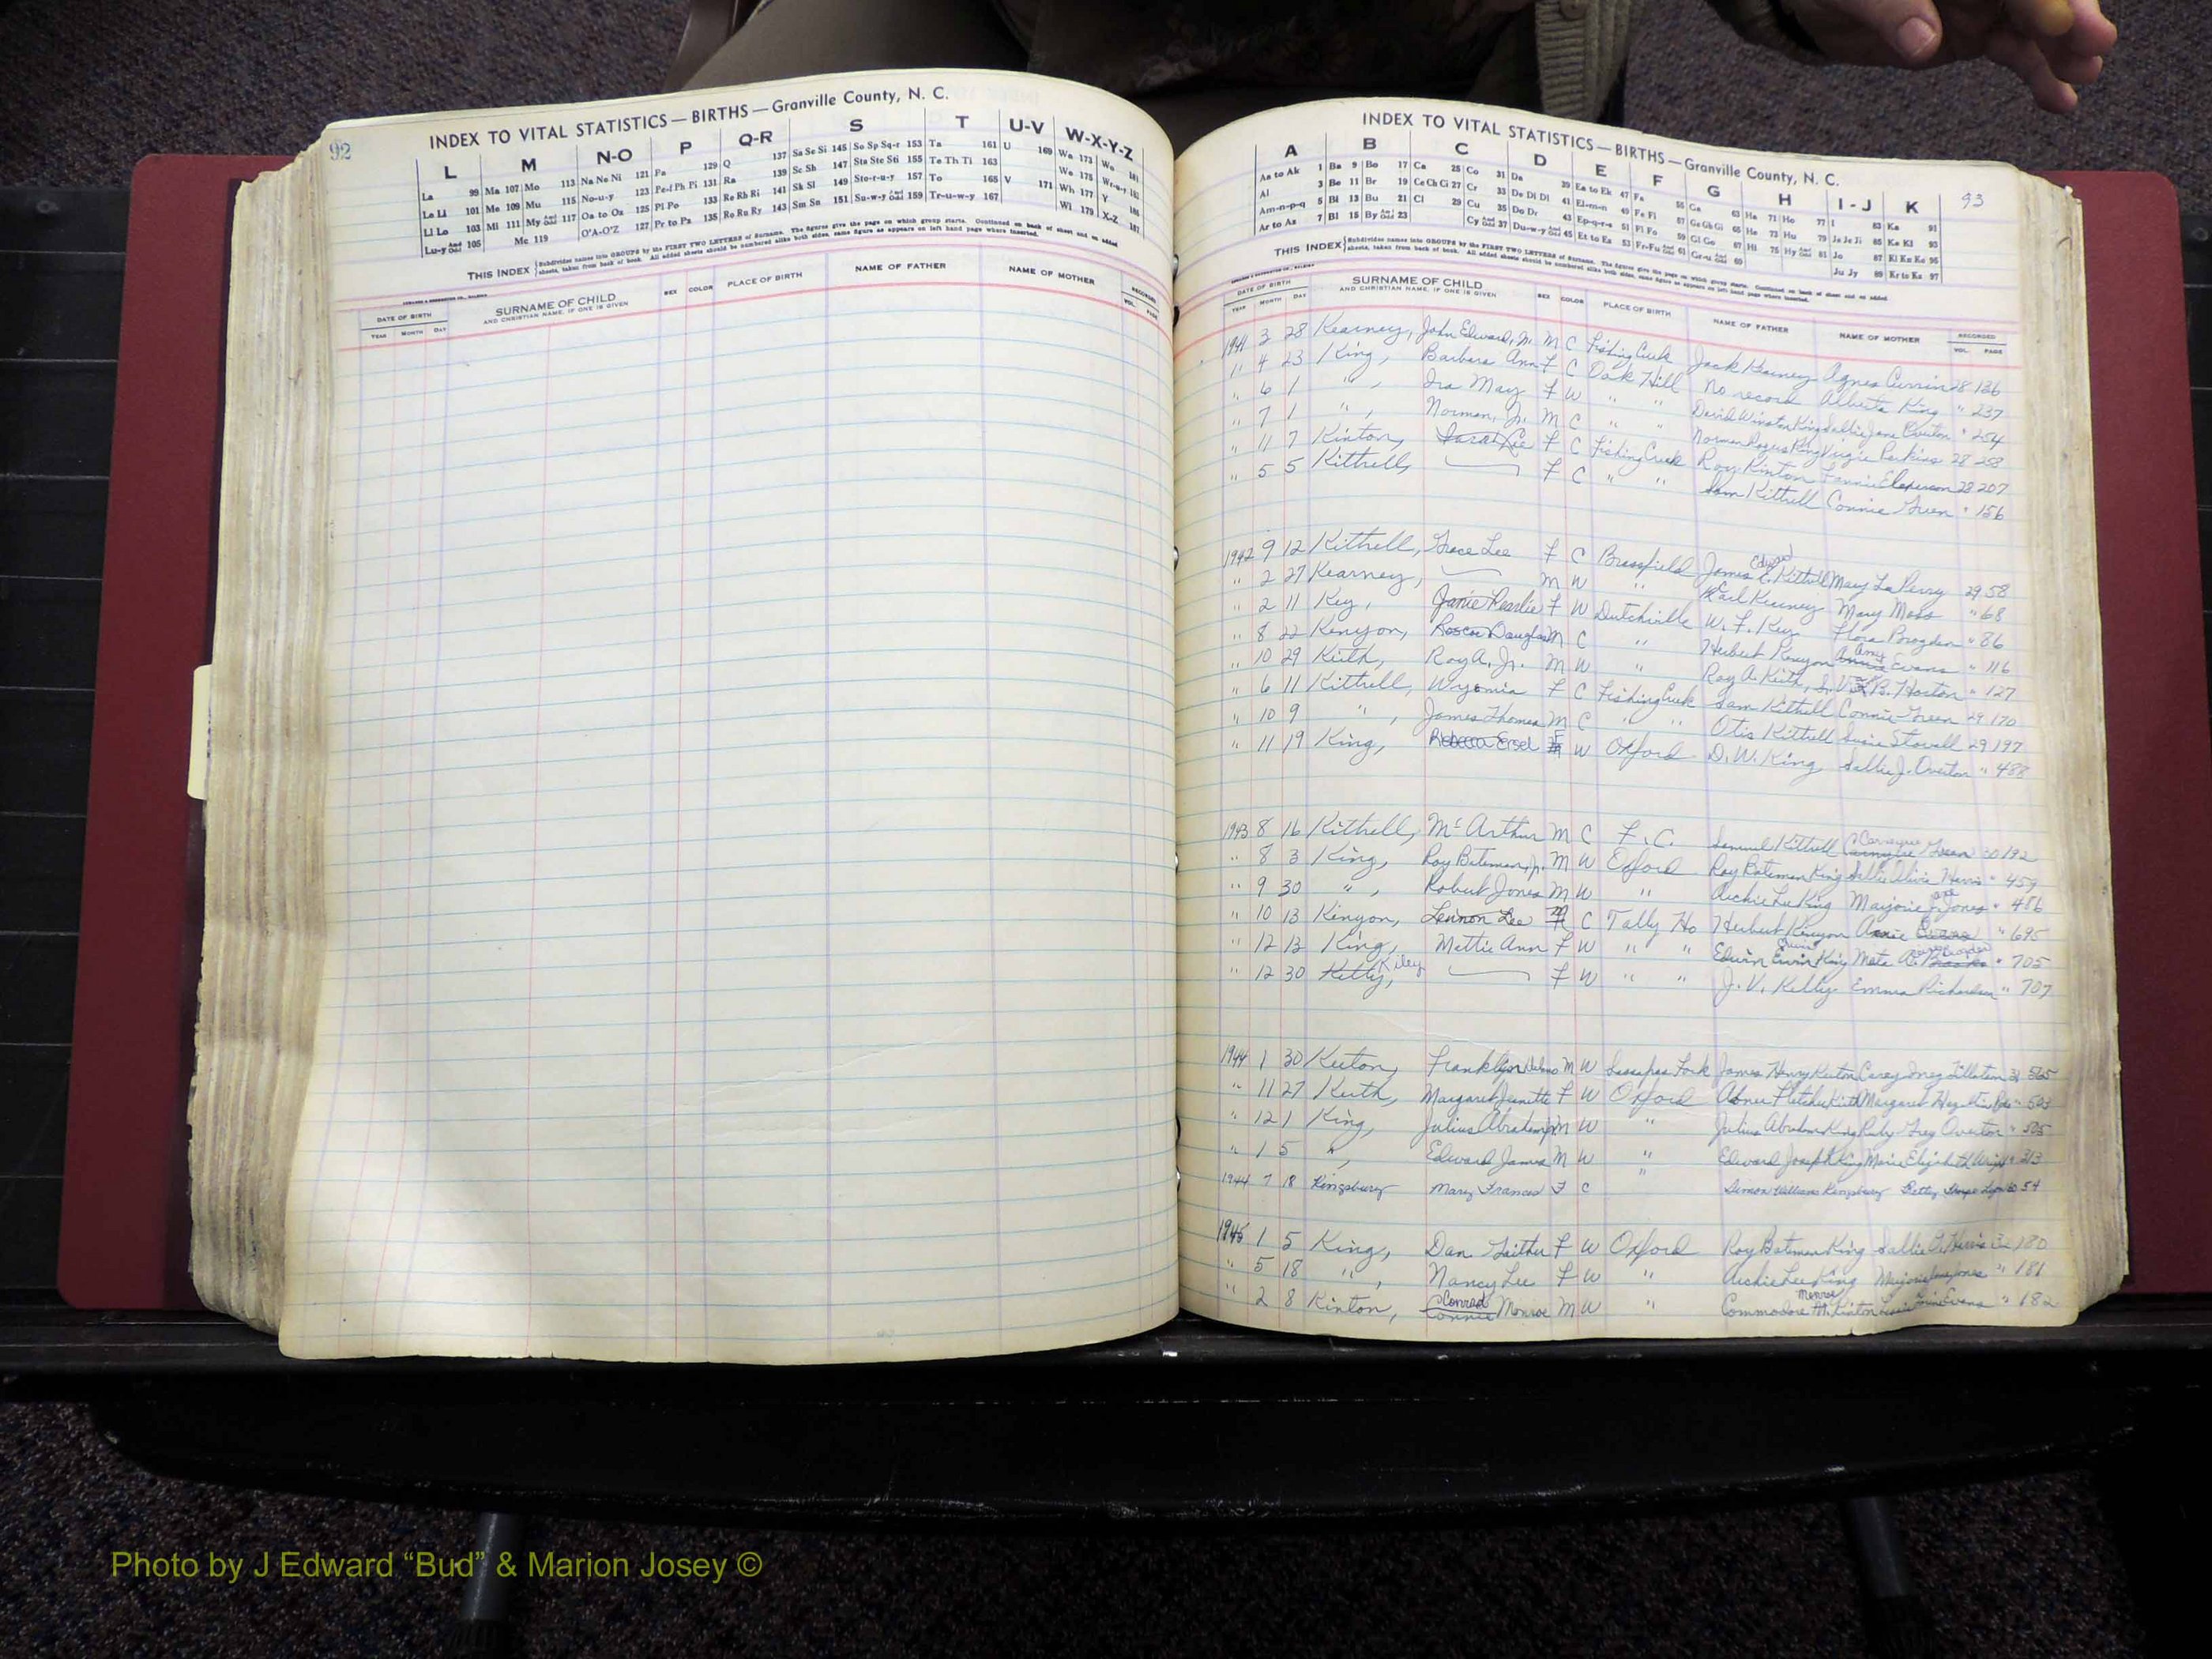 92
INDEX TO VITAL STATISTICS — BIRTHS — Granville County, N. C.
L M N-O P Q-R S T U-V W-X-Y-Z
La 99 Ma 107 Mo 113 Na Ne Ni 121 Pa 129 Q 137 Sa Se Si 145 So Sp Sq-r 153 Ta 161 U 169 Wa 173 Wo 181
Le Li 101 Me 109 Mu 115 No-u-y 123 Pe-f Ph Pi 131 Ra 139 Sc Sh 147 Sta Ste Sti 155 Te Th Ti 163 We 175 Wr-u-y 183
Ll Lo 103 Mi 111 My And Odd 117 Oa to Oz 125 Pl Po 133 Re Rh Ri 141 Sk Sl 149 Sto-r-u-y 157 To 165 V 171 Wh 177 Y
Lu-y And Odd 105 Mc 119 O'A-O'Z 127 Pr to Pz 135 Ro Ru Ry 143 Sm Sn 151 Su-w-y And Odd 159 Tr-u-w-y 167 Wi 179 X-Z 187
THIS INDEX Subdivides names into GROUPS by the FIRST TWO LETTERS of Surname. The figures give the page on which group starts. Continued on back of sheet and on added
sheets, taken from back of book. All added sheets should be numbered alike both sides, same figure as appears on left hand page where inserted.
DATE OF BIRTH SURNAME OF CHILD SEX COLOR PLACE OF BIRTH NAME OF FATHER NAME OF MOTHER RECORDED
YEAR MONTH DAY AND CHRISTIAN NAME, IF ONE IS GIVEN VOL. PAGE
INDEX TO VITAL STATISTICS — BIRTHS — Granville County, N. C.
93
A B C D E F G H I-J K
Aa to Ak 1 Ba 9 Bo 17 Ca 25 Co 31 Da 39 Ea to Ek 47 Fa 55 Ga 63 Ha 71 Ho 77 I 83 Ka 91
Al 3 Be 11 Br 19 Ce Ch Ci 27 Cr 33 De Di Dl 41 El-m-n 49 Fe Fi 57 Ge Gh Gi 65 He 73 Hu 79 Ja Je Ji 85 Ke Ki 93
Am-n-p-q 5 Bi 13 Bu 21 Cl 29 Cu 35 Do Dr 43 Ep-q-r-s 51 Fl Fo 59 Gl Go 67 Hi 75 Hy And Odd 81 Jo 87 Kl Kn Ko 95
Ar to Az 7 Bl 15 By And Odd 23 Cy And Odd 37 Du-w-y And Odd 45 Et to Ez 53 Fr-Fu And Odd 61 Gr-u And Odd 69 Ju Jy 89 Kr to Kz 97
THIS INDEX Subdivides names into GROUPS by the FIRST TWO LETTERS of Surname. The figures give the page on which group starts. Continued on back of sheet and on added
sheets, taken from back of book. All added sheets should be numbered alike both sides, same figure as appears on left hand page where inserted.
DATE OF BIRTH SURNAME OF CHILD SEX COLOR PLACE OF BIRTH NAME OF FATHER NAME OF MOTHER RECORDED
YEAR MONTH DAY AND CHRISTIAN NAME, IF ONE IS GIVEN VOL. PAGE
1941 3 28 Kearney, John Edward, Jr. M C Fishing Creek Jack Kearney Agnes Currin 28 136
" 4 23 King, Barbara Ann F C Oak Hill No record Alberta King " 237
" 6 1 " , Ira May F W " " David Winston King Sallie Jane Overton " 254
" 7 1 " , Norman, Jr. M C " " Norman Rogers King Virgie Perkins 28 258
" 11 7 Kinton, Sarah Lee F C Fishing Creek Roy Kinton Fannie 28 207
" 5 5 Kittrell, F C " " Sam Kittrell Connie Green " 156
1942 9 12 Kittrell, Grace Lee F C Brassfield James E. Edgar Kittrell Mary La Perry 29 58
" 2 27 Kearney, M W " Karl Kearney Mary Moss " 68
" 2 11 Key, Janie Pearlie F W Dutchville W. F. Key Flora Brogden " 86
" 8 22 Kenyon, Roscoe Douglas M C " Herbert Kenyon Annie Amy Evans " 116
" 10 29 Keith, Roy A. Jr. M W " Roy A. Keith, S. B. Horton " 127
" 6 11 Kittrell, Wyomia F C Fishing Creek Sam Kittrell Connie Green 29 170
" 10 9 " , James Thomas M C " " Otis Kittrell Susie Stovall 29 197
" 11 19 King, Rebecca Ersel F W Oxford D. W. King Sallie J. Overton " 488
1943 8 16 Kittrell, McArthur M C F. C. Samuel Kittrell Green 30 192
" 8 3 King, Roy Bateman, Jr. M W Oxford Roy Bateman King Sallie Olivia Harris " 459
" 9 30 " , Robert Jones M W " Archie Lee King Marjorie Jones " 486
" 10 13 Kinyon, Lennon Lee M C Tally Ho Herbert Kenyon Annie Evans " 695
" 12 13 King, Mettie Ann F W " " Edwin King Meta A. " 705
" 12 30 Kelly, Kiley F W " " J. V. Kelly Emma Richardson " 707
1944 1 30 Keeton, Franklyn Delano M W Sassafras Fork James Henry Keeton Carey Inez Tillotson 31 565
" 11 27 Keith, Margaret Jeanette F W Oxford Abner Fletcher Keith Margaret " 503
" 12 1 King, Julius Abraham Jr M W " Julius Abraham King Ruby Grey Overton " 505
" 1 5 " , Edward James M W " Edward Joseph King Marie Elizabeth Wright " 313
1944 7 18 Kingsbury Mary Frances F C " Simon Williams Kingsbury Betty 54
1945 1 5 King, Dan Gaither F W Oxford Roy Bateman King Sallie O. Harris 32 180
" 5 18 " , Nancy Lee F W " Archie Lee King Marjorie Jane Jones " 181
" 2 8 Kinton, Connie Conrad Monroe M W " Commodore M. Monroe Kinton Evans " 182
Photo by J Edward “Bud” & Marion Josey ©